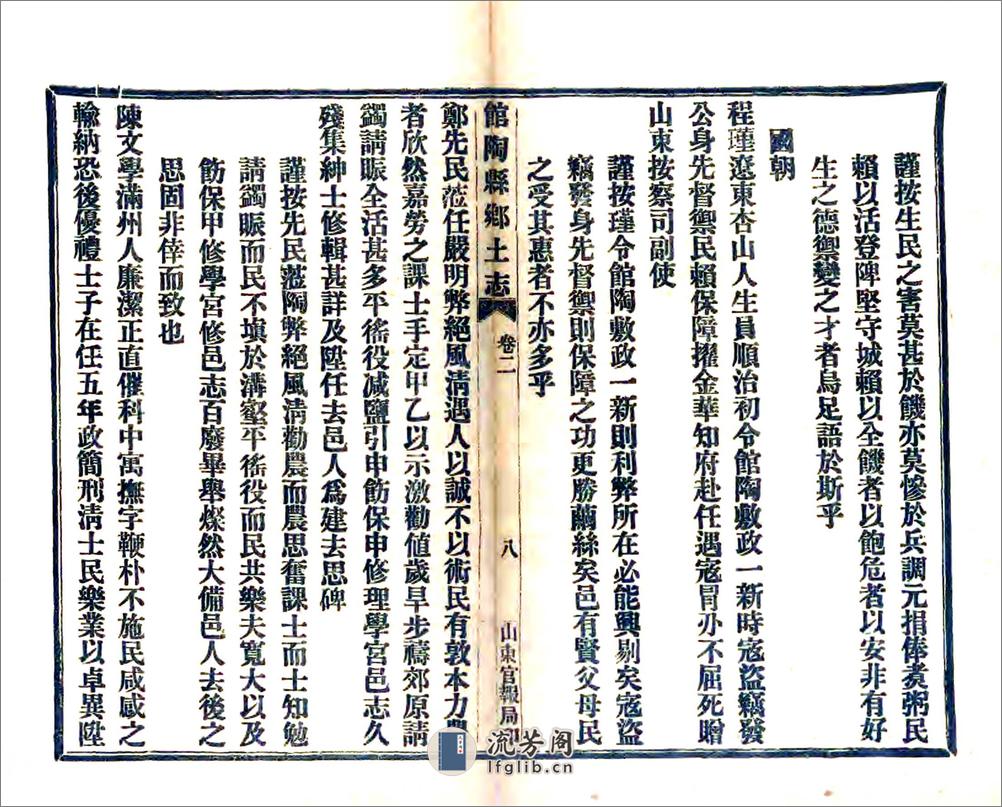 謹按生民之害莫甚於饑亦莫慘於兵調元捐俸煮粥民
賴以活登陴堅守城賴以全饑者以飽危者以安非有好
生之德禦變之才者烏足語於斯乎
國朝
程瑾遼東杏山人生員順治初令館陶敷政一新時寇盜竊發
公身先督禦民賴保障擢金華知府赴任遇寇冒刅不屈死贈
山東按察司副使
謹按瑾令館陶敷政一新則利弊所在必能興剔矣寇盜
竊發身先督禦則保障之功更勝繭絲矣邑有賢父母民
之受其惠者不亦多乎
館陶縣鄉土志 卷二 八 山東官報局
鄭先民蒞任嚴明弊絕風淸遇人以誠不以術民有敦本力
者欣然嘉勞之課士手定甲乙以示激勸値歲旱步禱郊原請
蠲請賑全活甚多平徭役減鹽引申飭保甲修理學宮邑志久
殘集紳士修輯甚詳及陞任去邑人爲建去思碑
謹按先民蒞陶弊絕風淸勸農而農思奮課士而士知勉
請蠲賑而民不塡於溝壑平徭役而民共樂夫寬大以及
飭保甲修學宮修邑志百廢畢舉燦然大備邑人去後之
思固非倖而致也
陳文學滿州人廉潔正直催科中寓撫字鞭朴不施民咸感之
輸納恐後優禮士子在任五年政簡刑淸士民樂業以卓異陞
流芳阁
lfglib.cn